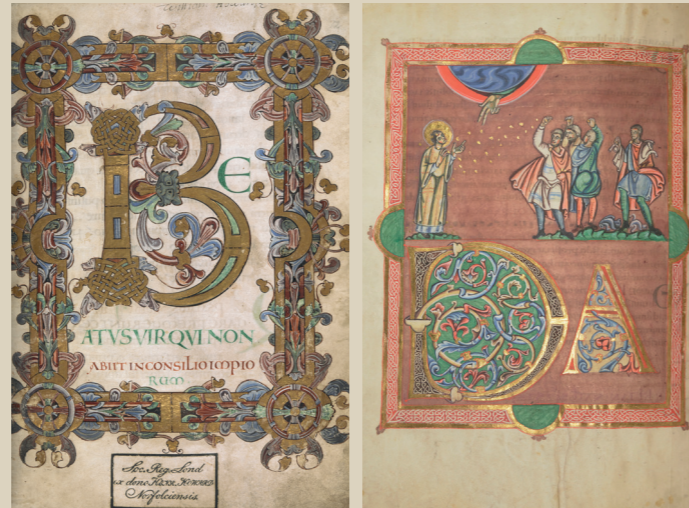 BE
ATVS VIR QVI NON
ABIIT IN CONSILIO IMPIO
RUM
Soc. Reg. Lond
ex dono HENR. HOWARD
Norfolciensis.
DA